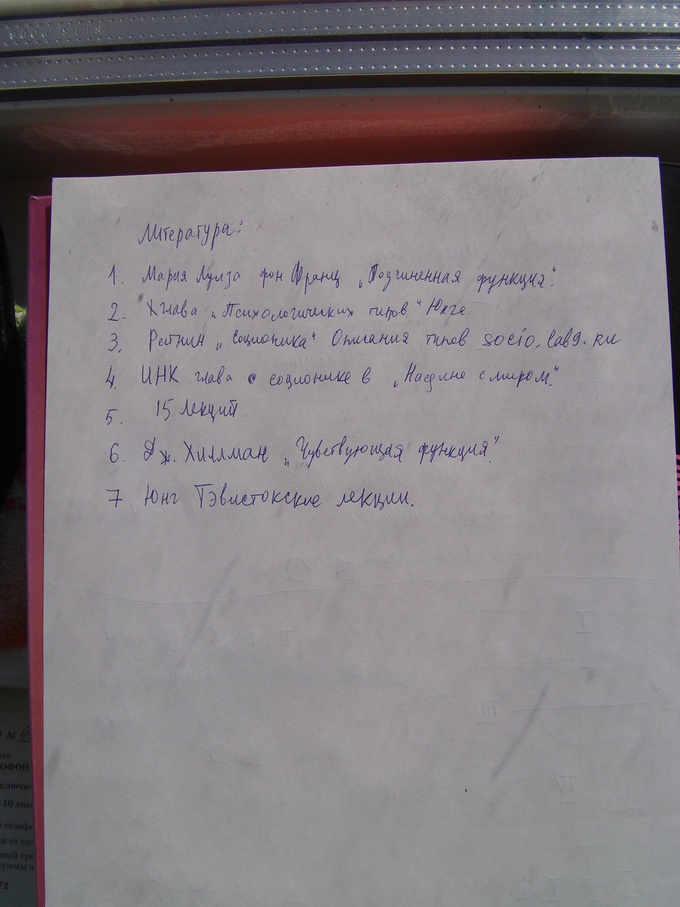 Литература:
1. Мария Луиза фон Франц „Подчиненная функция".
2. X глава „Психологических типов" Юнг
3. Рейнин „Соционика" Описания типов socio.lab9.ru
4. ИНК глава о соционике в „Наедине с миром".
5. 15 лекций
6. Дж. Хиллман „Чувствующая функция"
7. Юнг Тэвистокские лекции.